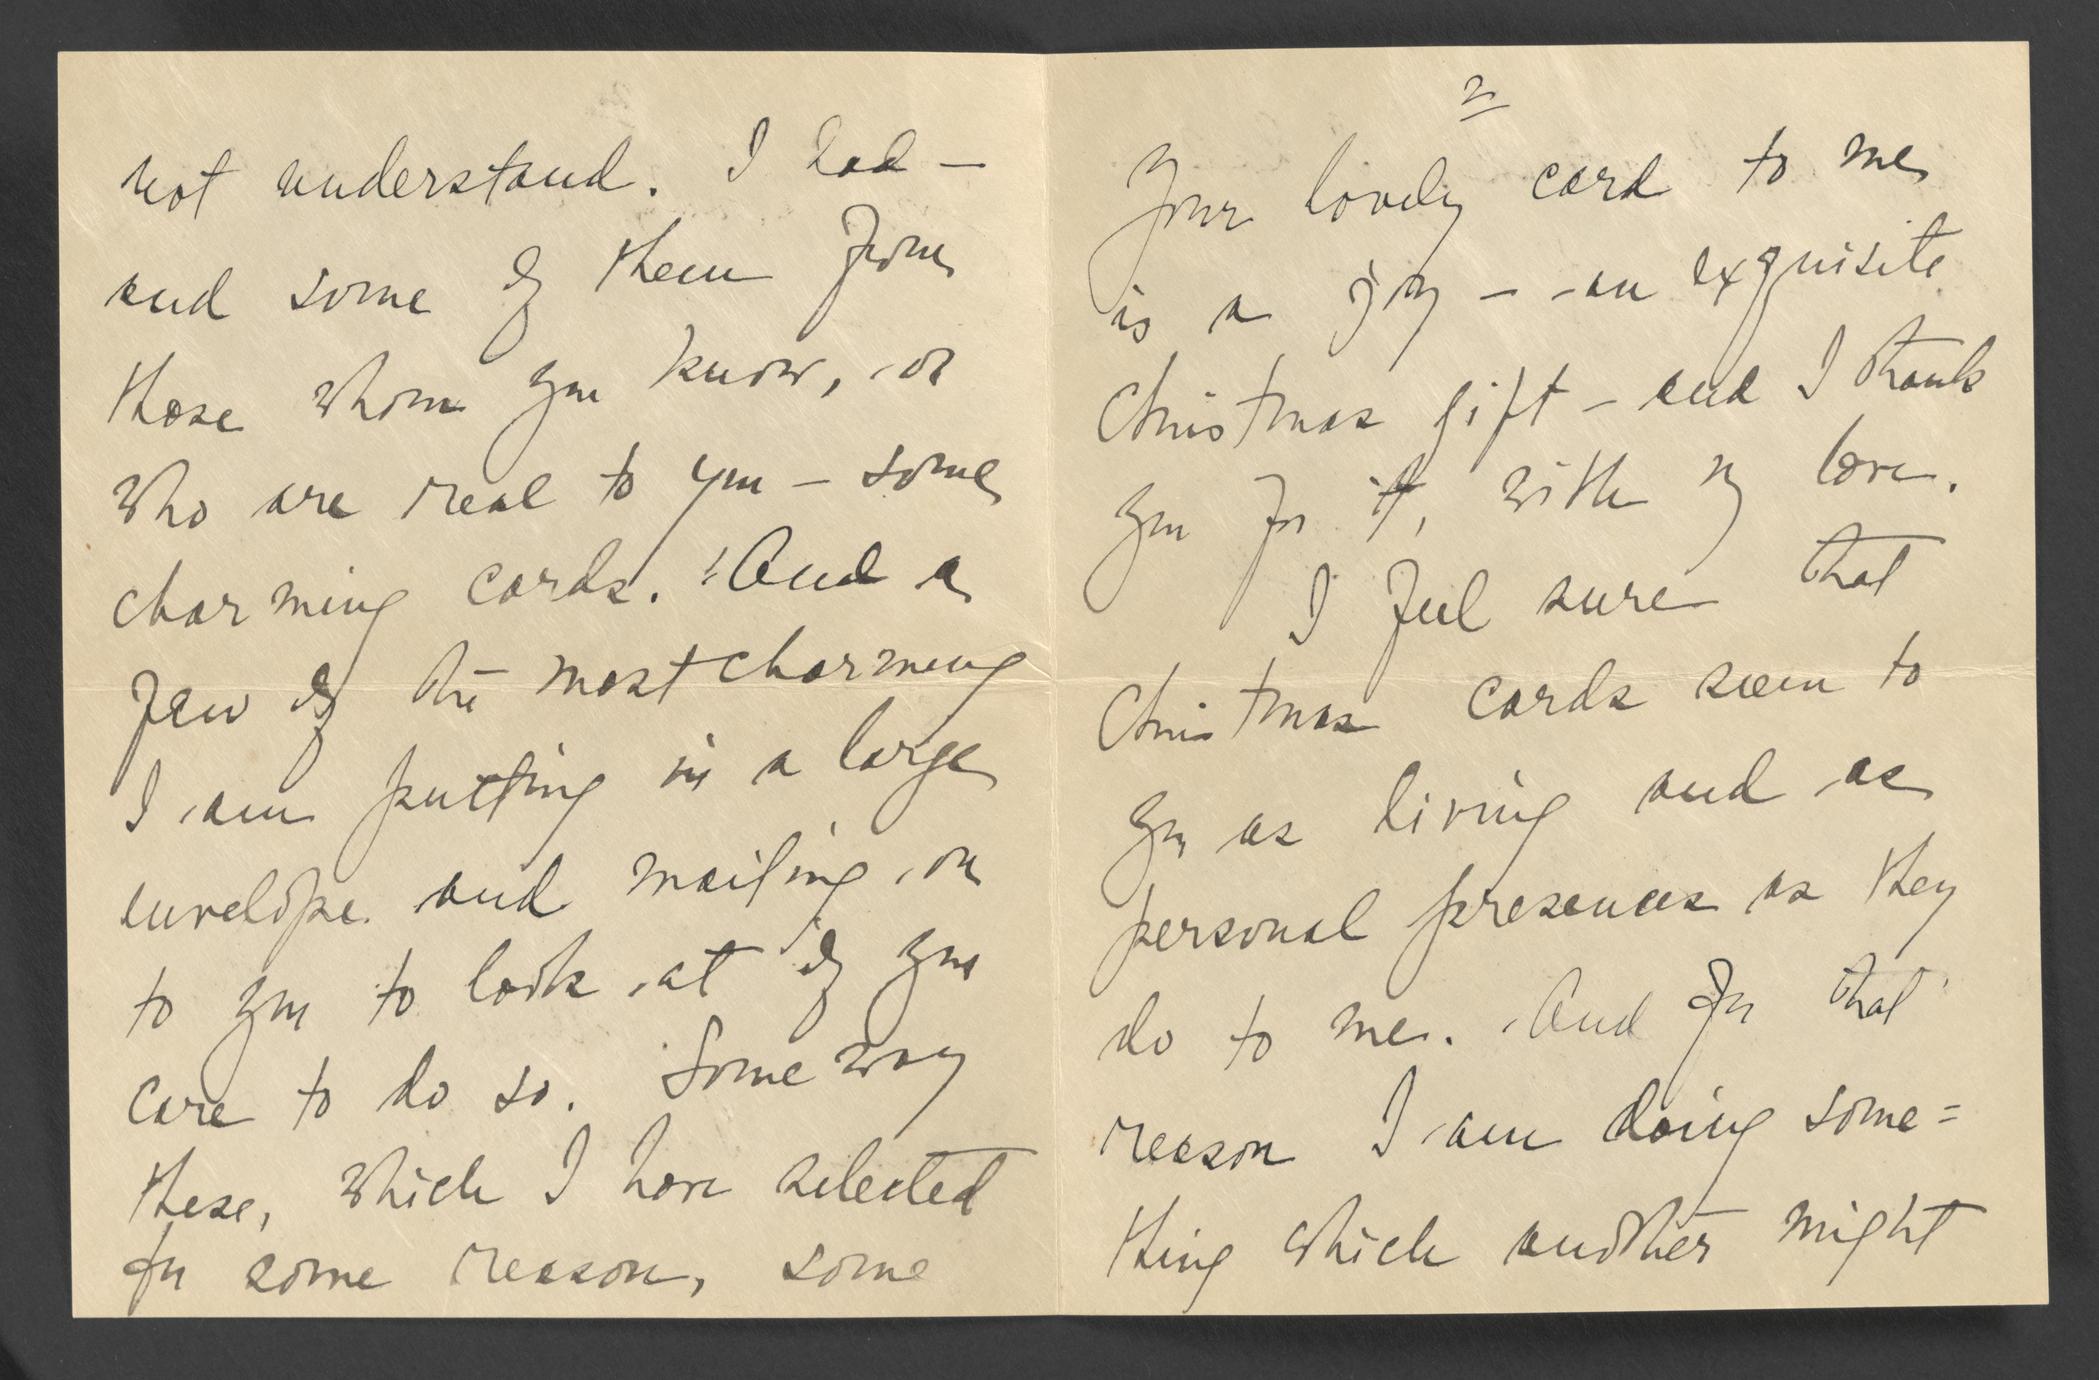 2
Your lovely card to me
is a joy — an exquisite
Christmas gift — and I thank
you for it, with my love.
I feel sure that
Christmas cards seem to
you as living and as
personal presences as they
do to me. And for that
reason I am doing some=
thing which another might
not understand. I had —
and some of them from
those whom you know, or
who are real to you — some
charming cards. And a
few of the most charming
I am putting in a large
envelope and mailing on
to you to look at if you
care to do so. Some way
these, which I have selected
for some reason, some